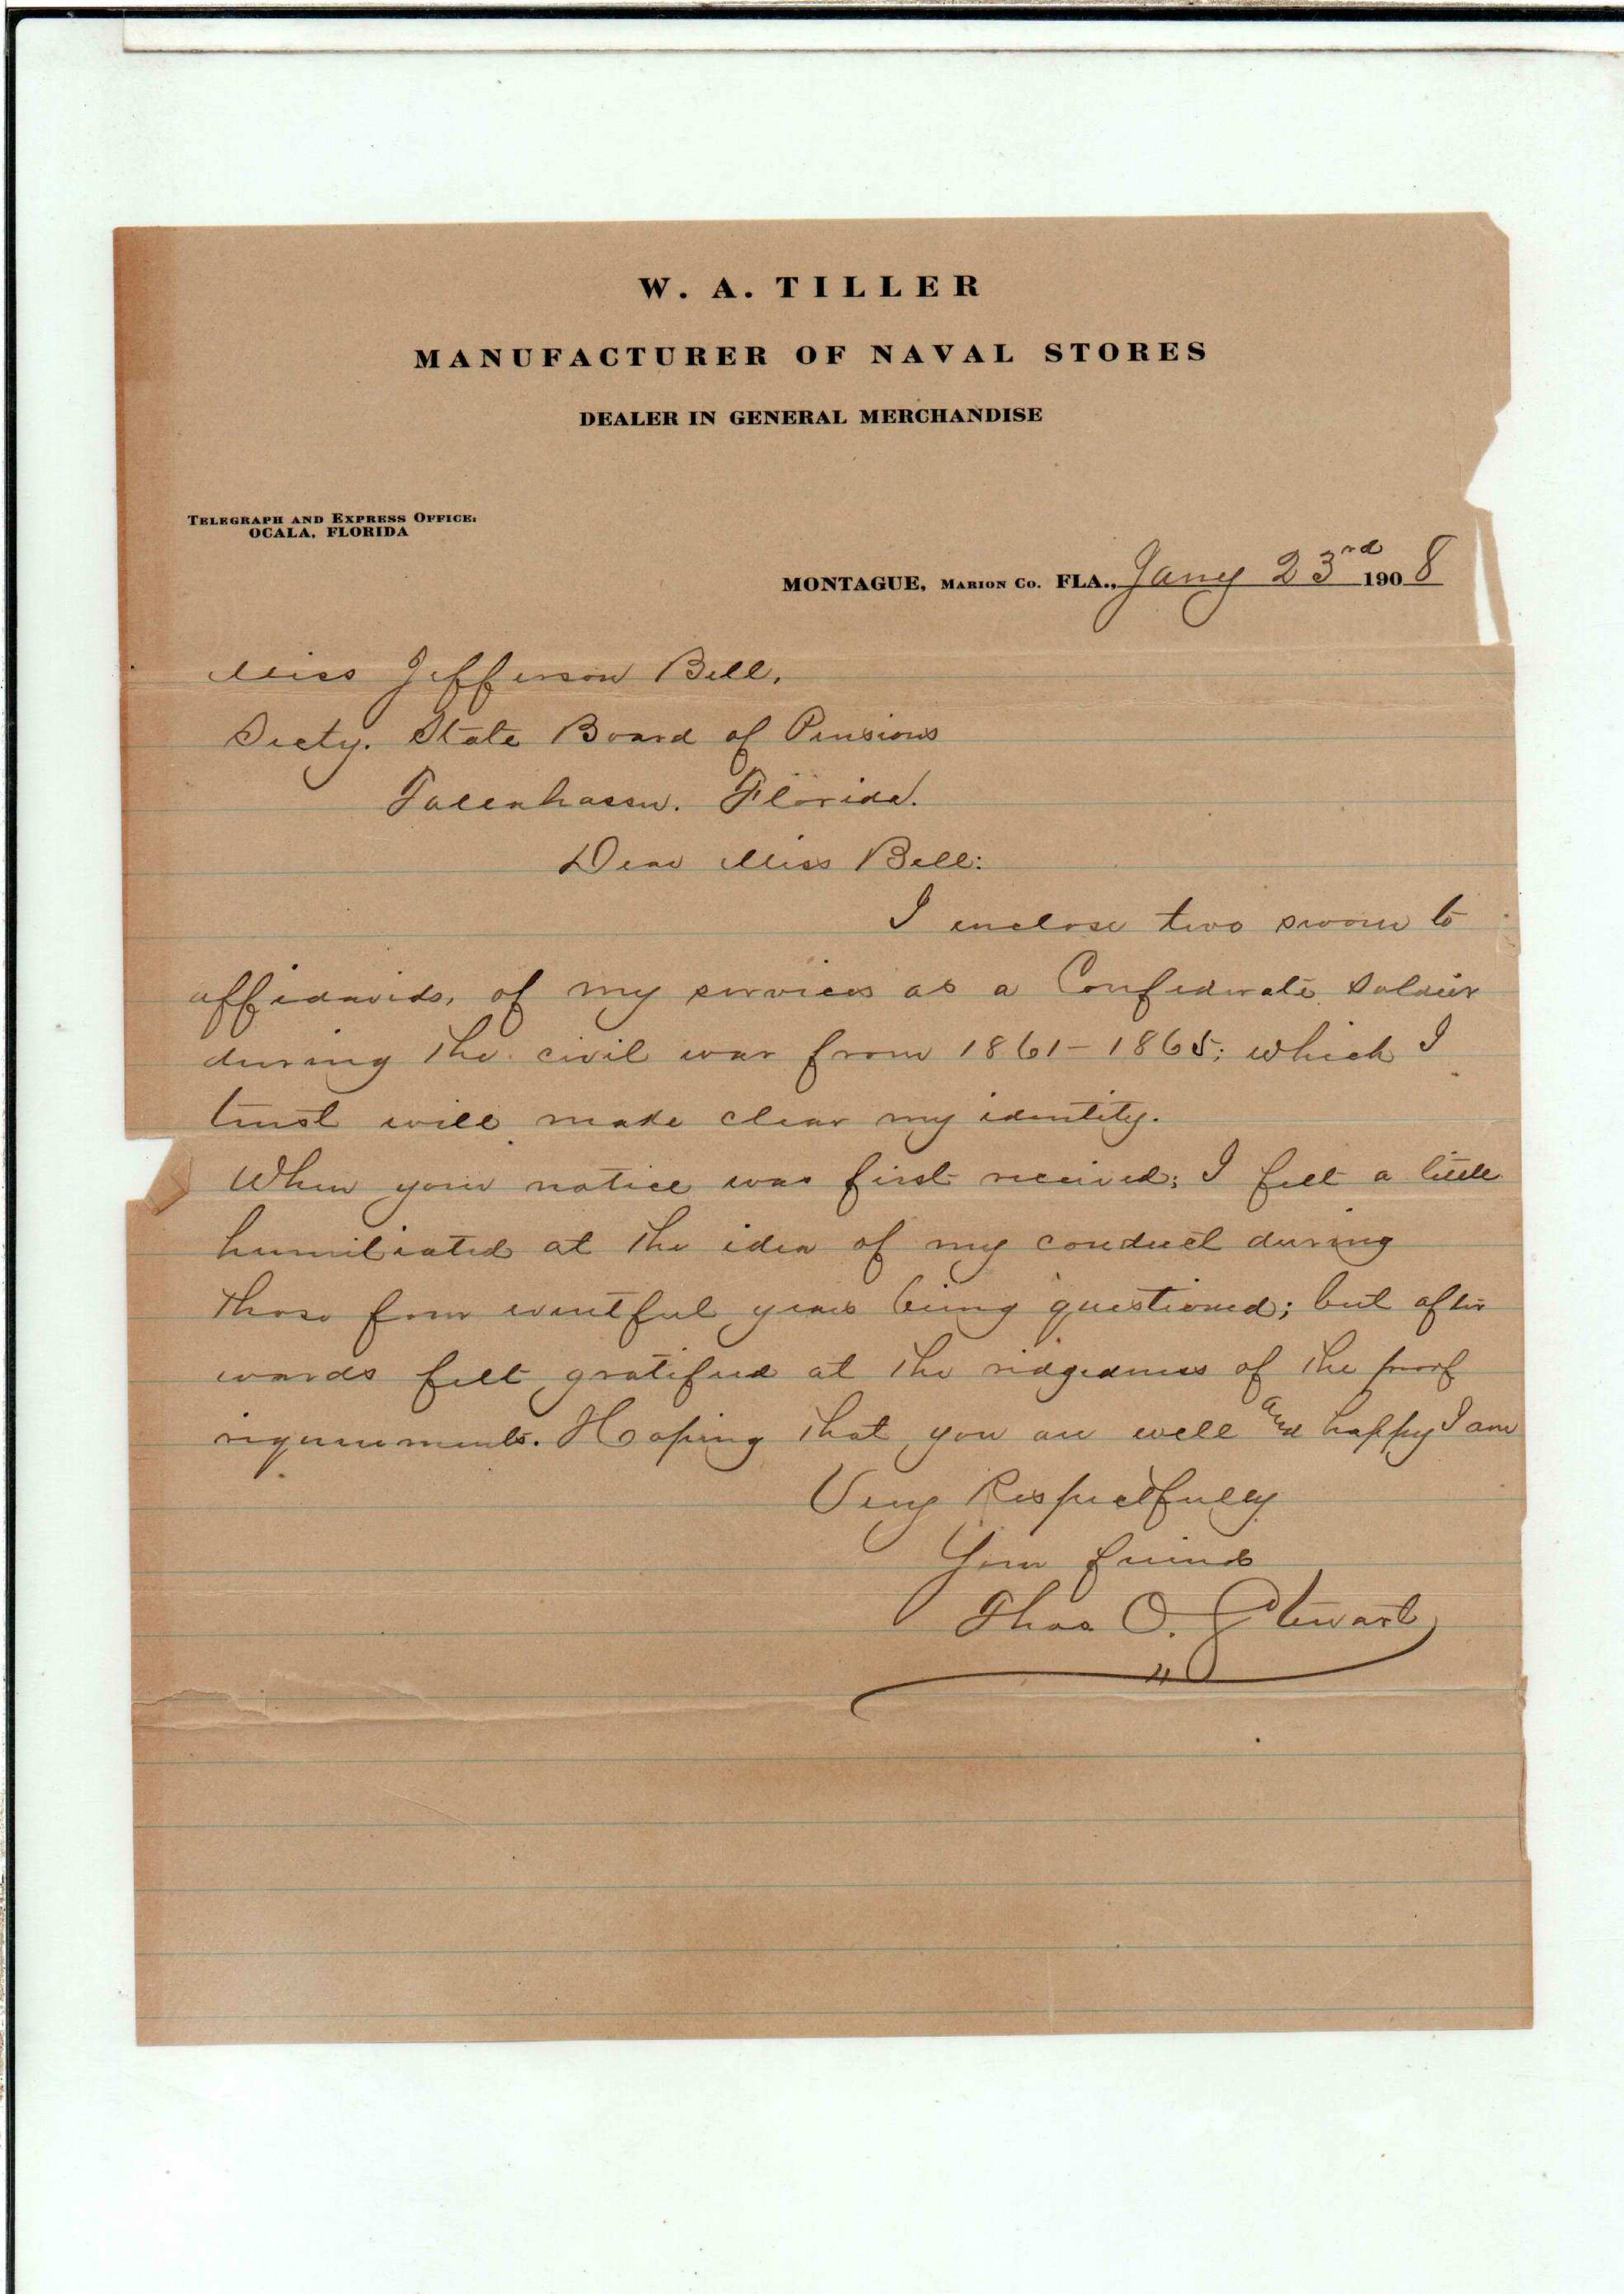 W. A. TILLER
MANUFACTURER OF NAVAL STORES
DEALER IN GENERAL MERCHANDISE
TELEGRAPH AND EXPRESS OFFICE:
OCALA, FLORIDA
MONTAGUE, MARION CO. FLA., Jany 23rd 1908
Miss Jefferson Bell,
Secty. State Board of Pensions
Tallahassee. Florida.
Dear Miss Bell:
I enclose two sworn to
affidavids, of my services as a Confederate Soldier
during the civil war from 1861-1865; which I
trust will make clear my identity.
When your notice was first received; I felt a little
humiliated at the idea of my conduct during
those four eventful years being questioned; but after
wards felt gratified at the ridgedness of the proof
requirements. Hoping that you are well and happy I am
Very Respectfully
Your friend
Thos O. Stewart